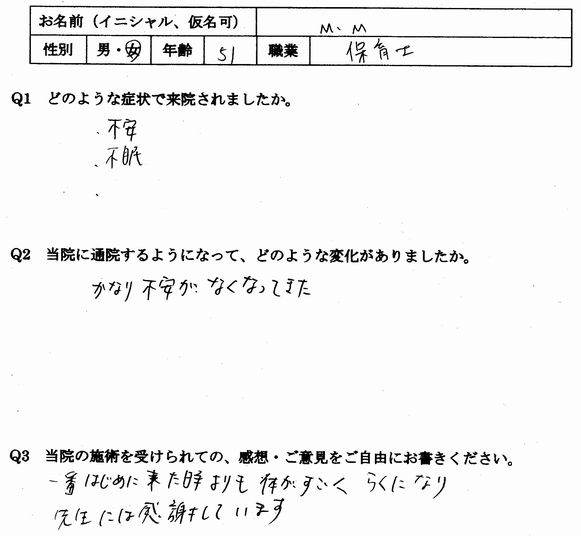 お名前（イニシャル、仮名可） M.M
性別 男・女 年齢 51 職業 保育士
Q1 どのような症状で来院されましたか。
・不安
・不眠
・
Q2 当院に通院するようになって、どのような変化がありましたか。
かなり不安がなくなってきた
Q3 当院の施術を受けられての、感想・ご意見をご自由にお書きください。
一番はじめに来た時よりも体がすごくらくになり
先生には感謝しています